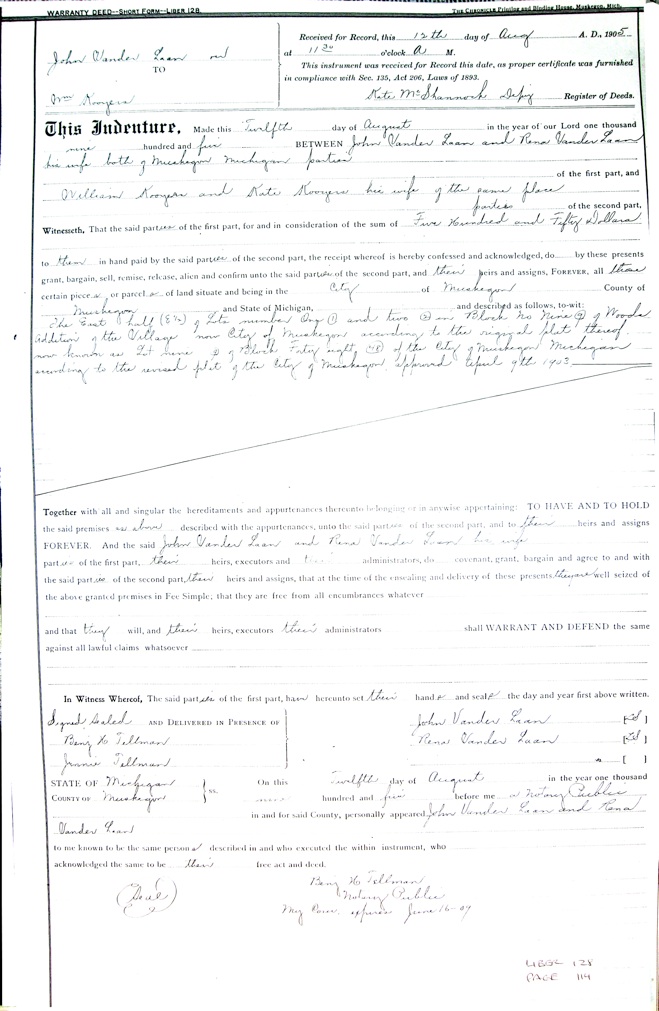 WARRANTY DEED--SHORT FORM--LIBER 128.
THE CHRONICLE Printing and Binding House, Muskegon, Mich.
John Vander Laan
TO
Wm Kooyers
Received for Record, this 12th day of Aug A. D., 1905
at 11 30 o'clock A M.
This instrument was received for Record this date, as proper certificate was furnished
in compliance with Sec. 135, Act 206, Laws of 1893.
Kate McShannock Register of Deeds.
This Indenture, Made this Twelfth day of August in the year of our Lord one thousand
nine hundred and five BETWEEN John Vander Laan and Rena Vander Laan
his wife both of Muskegon Michigan parties
of the first part, and
William Kooyers and Kate Kooyers his wife of the same place
parties of the second part,
Witnesseth, That the said parties of the first part, for and in consideration of the sum of Five Hundred and Fifty Dollars
to them in hand paid by the said parties of the second part, the receipt whereof is hereby confessed and acknowledged, do by these presents
grant, bargain, sell, remise, release, alien and confirm unto the said parties of the second part, and their heirs and assigns, FOREVER, all those
certain pieces or parcels of land situate and being in the City of Muskegon County of
Muskegon and State of Michigan, and described as follows, to-wit:
The East half (E 1/2) of Lots number One (1) and two (2) in Block No Nine (9) of Woods
Addition of the Village now City of Muskegon according to the original plat thereof.
now known as Lot nine of Block Forty eight (48) of the City of Muskegon Michigan
according to the revised plat of the City of Muskegon approved April 9th 1903
Together with all and singular the hereditaments and appurtenances thereunto belonging or in anywise appertaining: TO HAVE AND TO HOLD
the said premises as above described with the appurtenances, unto the said parties of the second part, and to their heirs and assigns
FOREVER. And the said John Vander Laan and Rena Vander Laan his wife
parties of the first part, their heirs, executors and administrators, do covenant, grant, bargain and agree to and with
the said parties of the second part, their heirs and assigns, that at the time of the ensealing and delivery of these presents they are well seized of
the above granted premises in Fee Simple; that they are free from all encumbrances whatever
and that they will, and their heirs, executors their administrators shall WARRANT AND DEFEND the same
against all lawful claims whatsoever
In Witness Whereof, The said parties of the first part, have hereunto set their hands and seals the day and year first above written.
Signed Sealed AND DELIVERED IN PRESENCE OF
John Vander Laan [Sd]
Benj H Tellman
Rena Vander Laan [Sd]
Jennie Tellman [ ]
STATE OF Michigan
COUNTY OF Muskegon ss.
On this Twelfth day of August in the year one thousand
nine hundred and five before me a Notary Public
in and for said County, personally appeared John Vander Laan and Rena
Vander Laan
to me known to be the same persons described in and who executed the within instrument, who
acknowledged the same to be their free act and deed.
(Seal)
Benj H Tellman
Notary Public
My Com. expires June 16-09
LIBER 128
PAGE 114